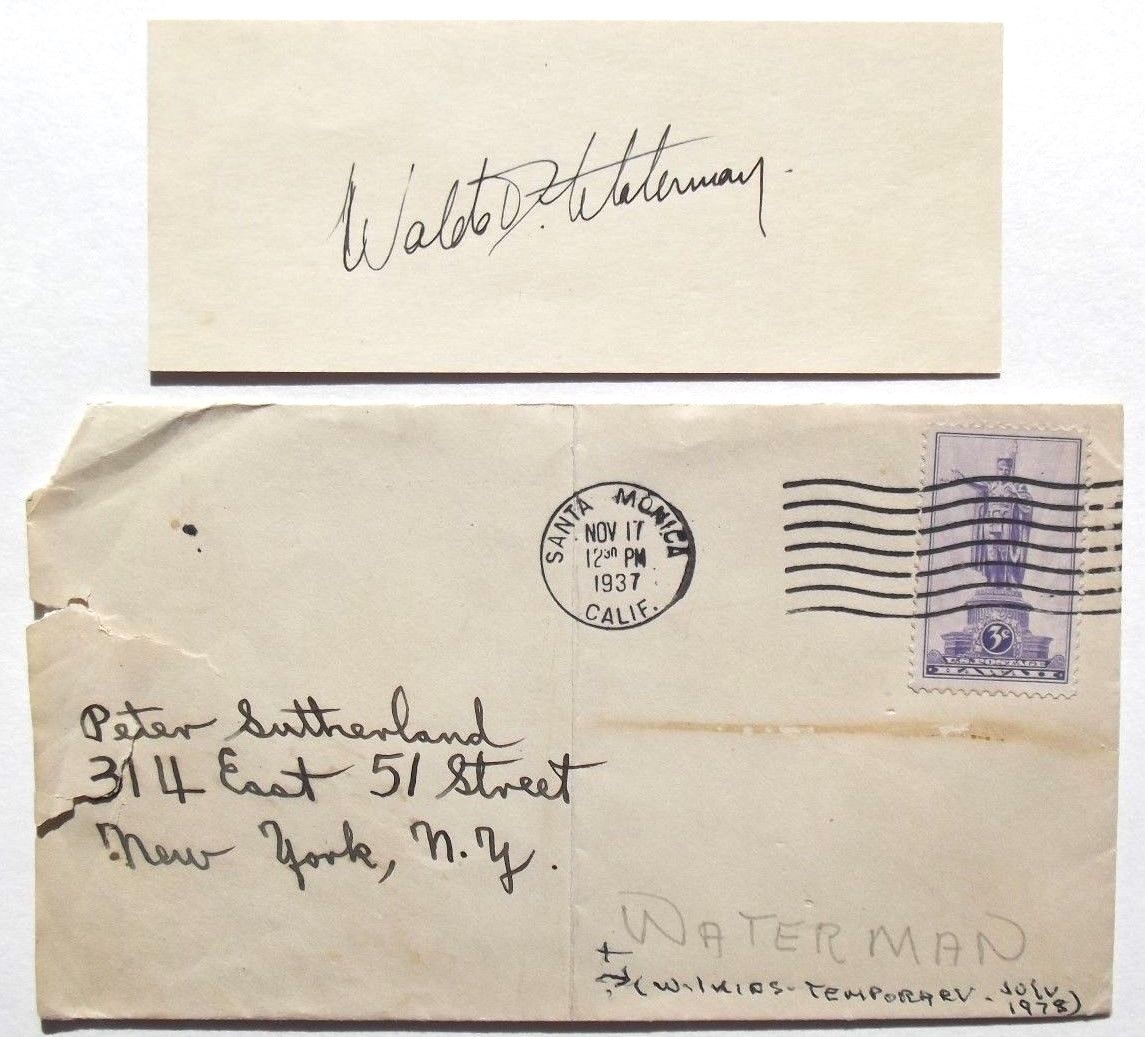 Waldo D. Waterman.
SANTA MONICA
NOV 17
12 30 PM
1937
CALIF.
3¢
U.S. POSTAGE
HAWAII
Peter Sutherland
314 East 51 Street
New York, N.Y.
WATERMAN
TEMPORARY - JULY
1978)